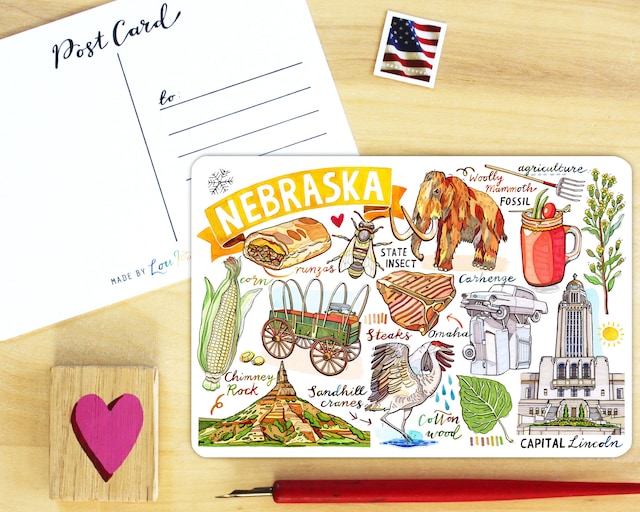 Post Card
to:
MADE BY Lou
NEBRASKA
agriculture
Woolly
Mammoth
FOSSIL
STATE
INSECT
runzas
corn
Carhenge
Steaks
Omaha
Chimney
Rock
Sandhill
cranes
Cotton
wood
CAPITAL Lincoln